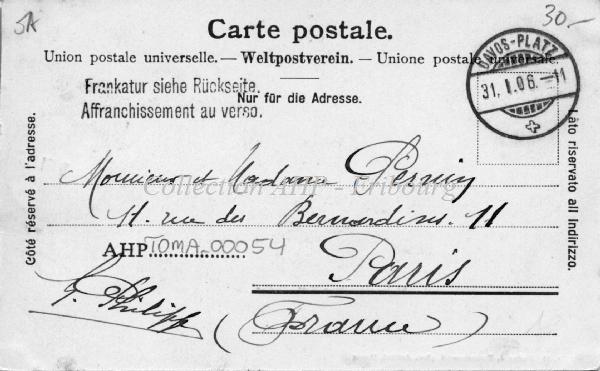 SK
30.-
Carte postale.
Union postale universelle. — Weltpostverein. — Unione postale universale.
DAVOS-PLATZ
31. I. 06. - 11
Frankatur siehe Rückseite.
Affranchissement au verso.
Nur für die Adresse.
Côté réservé à l'adresse.
Lato riservato all indirizzo.
Monsieur et Madame
Collection AHP - Fribourg
11. rue des Bernardins. 11
AHP TOMA-00054
Paris
G. Philipp
(France)